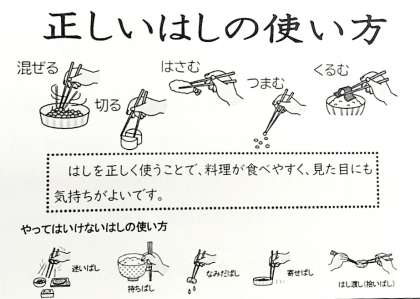 正しいはしの使い方
混ぜる
切る
はさむ
つまむ
くるむ
はしを正しく使うことで、料理が食べやすく、見た目にも
気持ちがよいです。
やってはいけないはしの使い方
迷いばし
持ちばし
なみだばし
寄せばし
はし渡し(拾いばし)